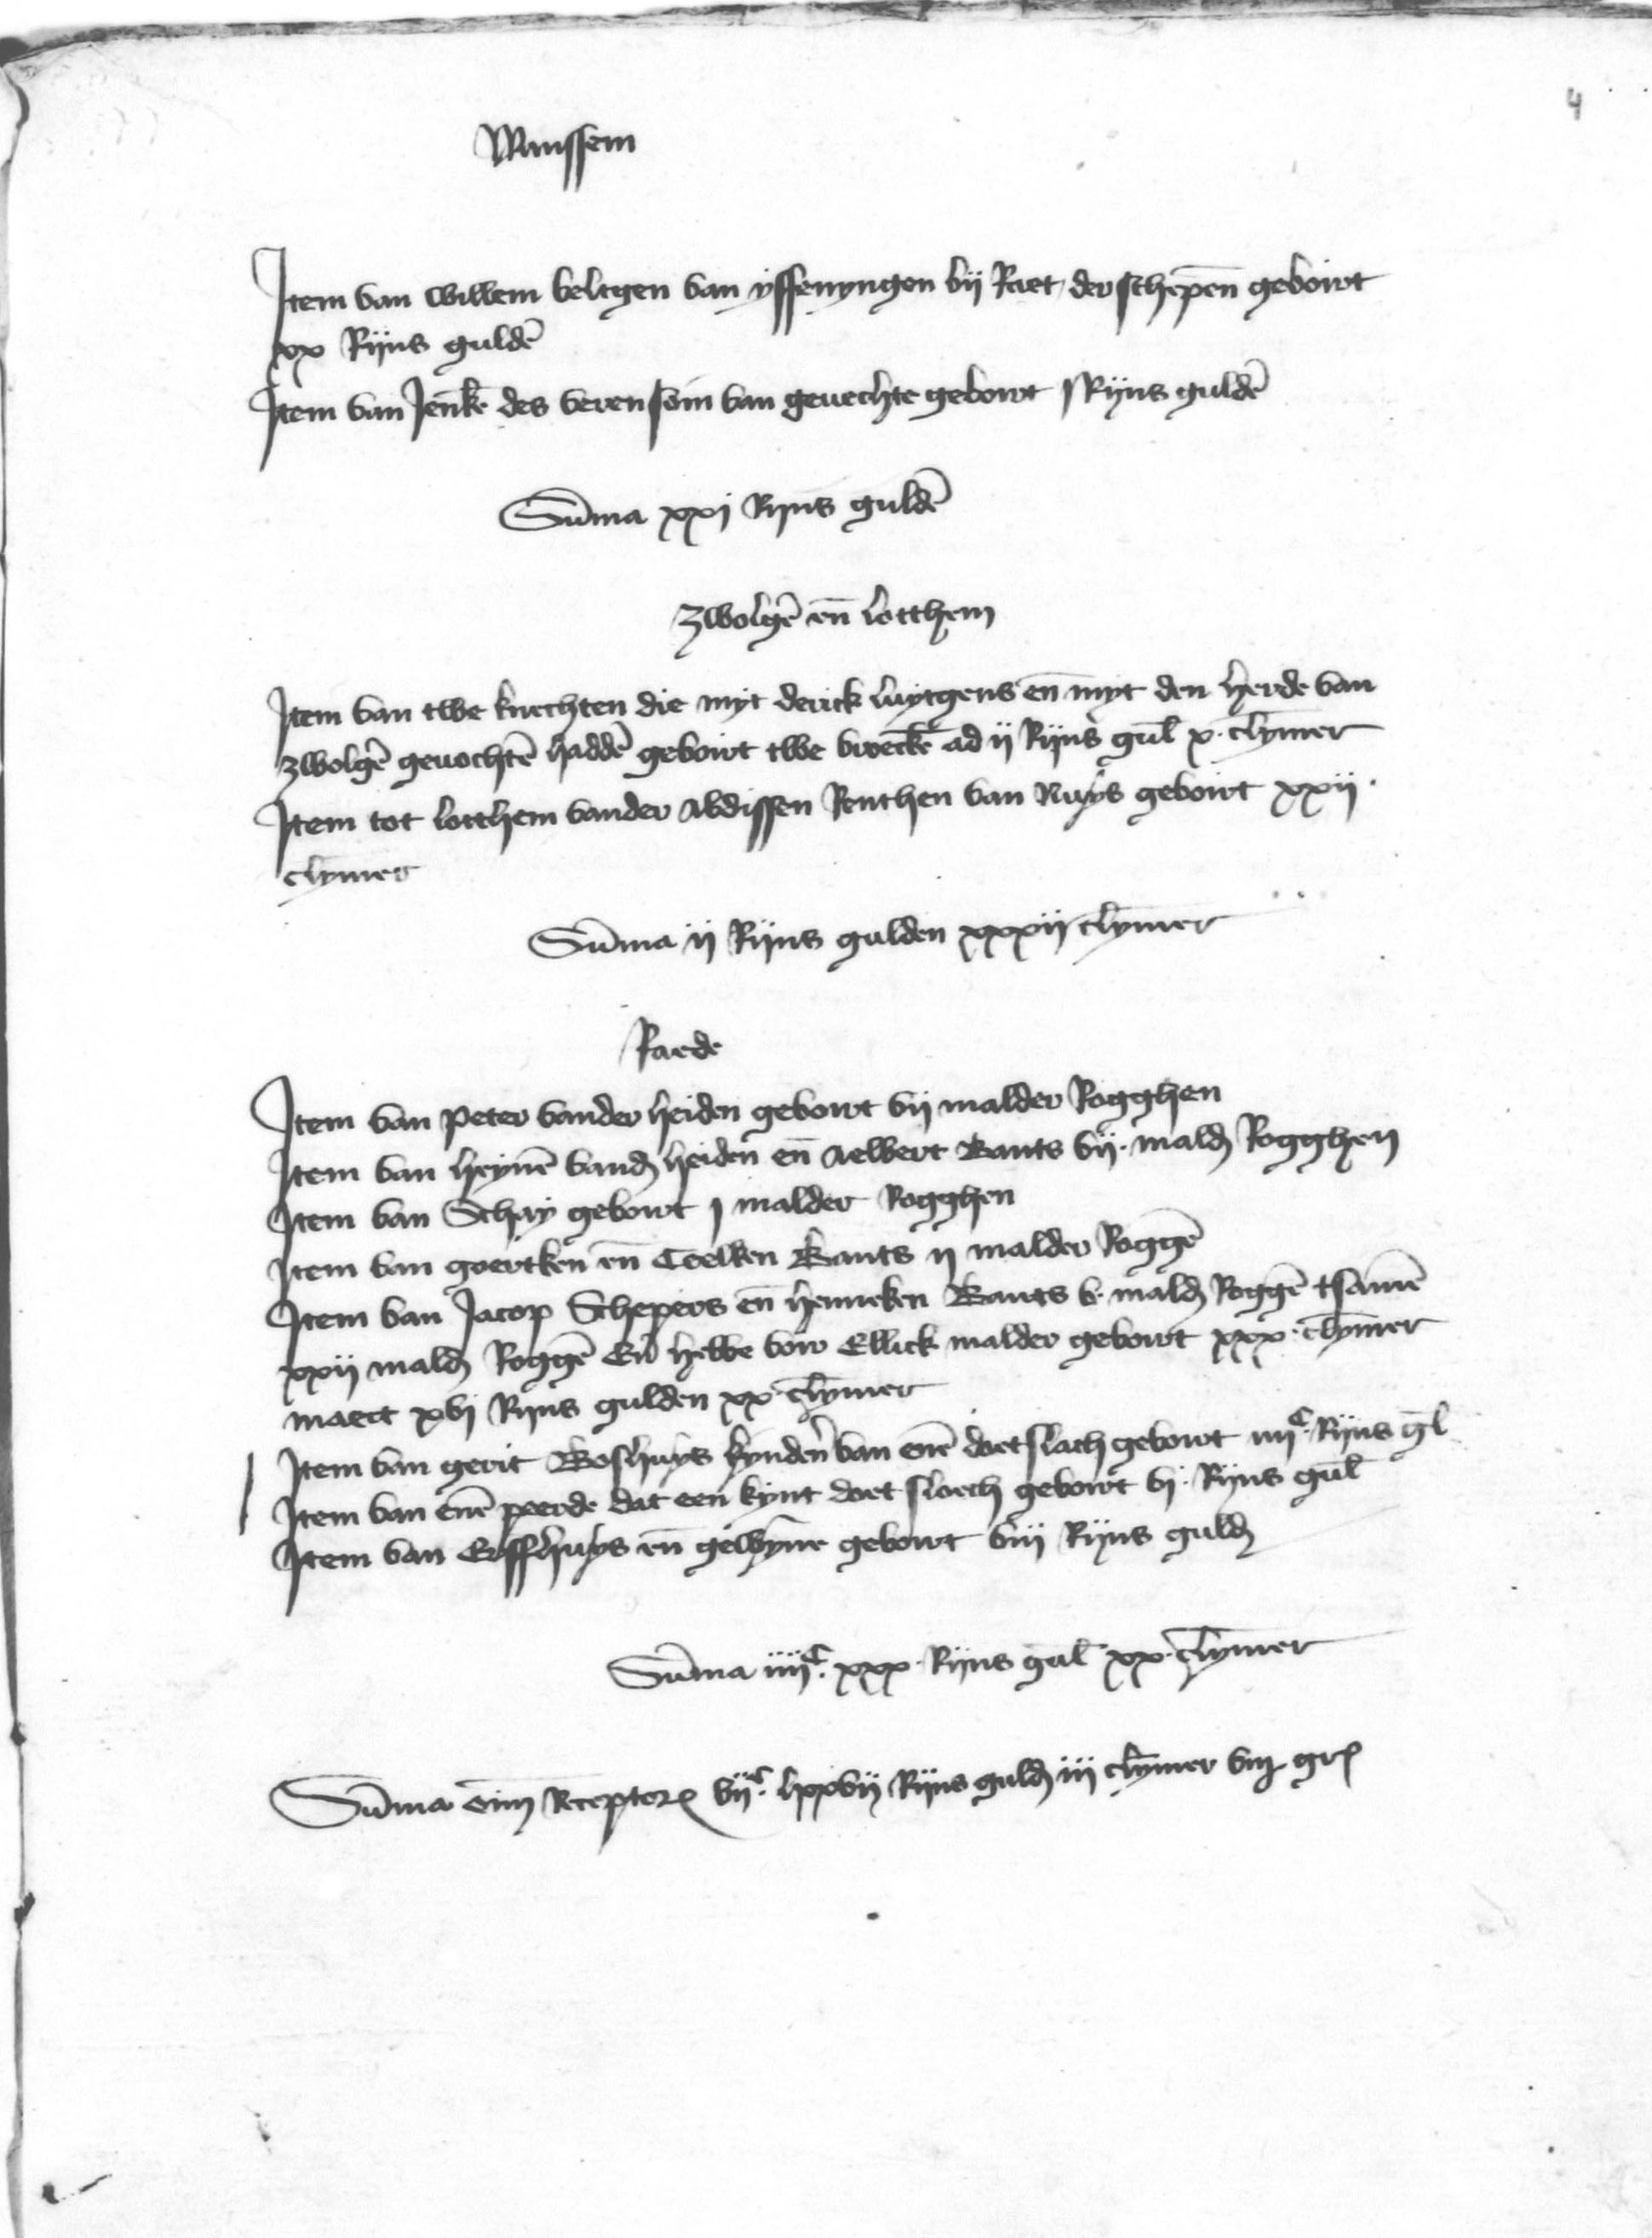 4
Wanssem
Item van willem beltgen van yssenyngen bij Raet der schepen̄ geboirt
xx Rijns guldē
Item van Jenkē des veren son van gevechte geboirt j Rijns guldē
Sūma xxj Rijns guldē
Zwolgē en̄ Lotthem
Item van twe knechten die myt derick luytgens en̄ myt den herde van
zwolgē gevochtē haddē geboirt twe broeckē ad ij Rijns gul̄ x. cl̄ymer
Item tot lotthem vander Abdissen Renthen van Nuys geboirt xxij.
cl̄ymer
Sūma ij Rijns gulden xxxij cl̄ymer
Raede
Item van Peter vander heiden geboirt vij malder Rogghen
Item van heynē vand heiden en̄ Aelbert Bants vij. mald Rogghen
Item van Schay geboirt j malder Rogghen
Item van goertken en̄ Coelken Bants ij malder Roggē
Item van Jacop Schepers en̄ henneken Bants v. mald Roggē tsamē
xxij mald Roggē En̄ hebbe voir Ellick malder geboirt xxx. cl̄ymer
maect xvj Rijns gulden xx. cl̄ymer
Item van gerit Boshuys kynden van enē doetslach geboirt iiijC. Rijns gl̄
Item van enē peerde dat een kynt doet sloech geboirt vj. Rijns gul̄
Item van Erffhuys en̄ gewyne geboirt viij Rijns guld
Sūma iiijC. xxx. Rijns gul̄ xx. cl̄ymer
Sūma oīm Receptor vijC. lxxvij Rijns guld iij cl̄ymer viij gr